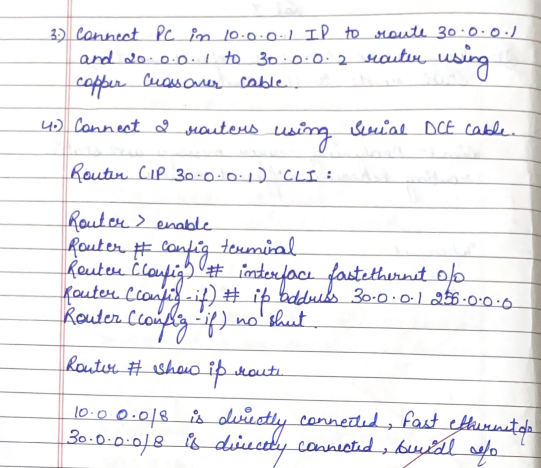 3.) Connect PC in 10.0.0.1 IP to route 30.0.0.1
and 20.0.0.1 to 30.0.0.2 router using
copper Crossover cable.
4.) Connect 2 routers using Serial DCE cable.
Router (IP 30.0.0.1) CLI :
Router > enable
Router # config terminal
Router (config) # interface fastethernet 0/0
Router (config-if) # ip address 30.0.0.1 255.0.0.0
Router (config-if) no shut.
Router # show ip route.
10.0.0.0/8 is directly connected, Fast ethernet 0/0
30.0.0.0/8 is directly connected, serial